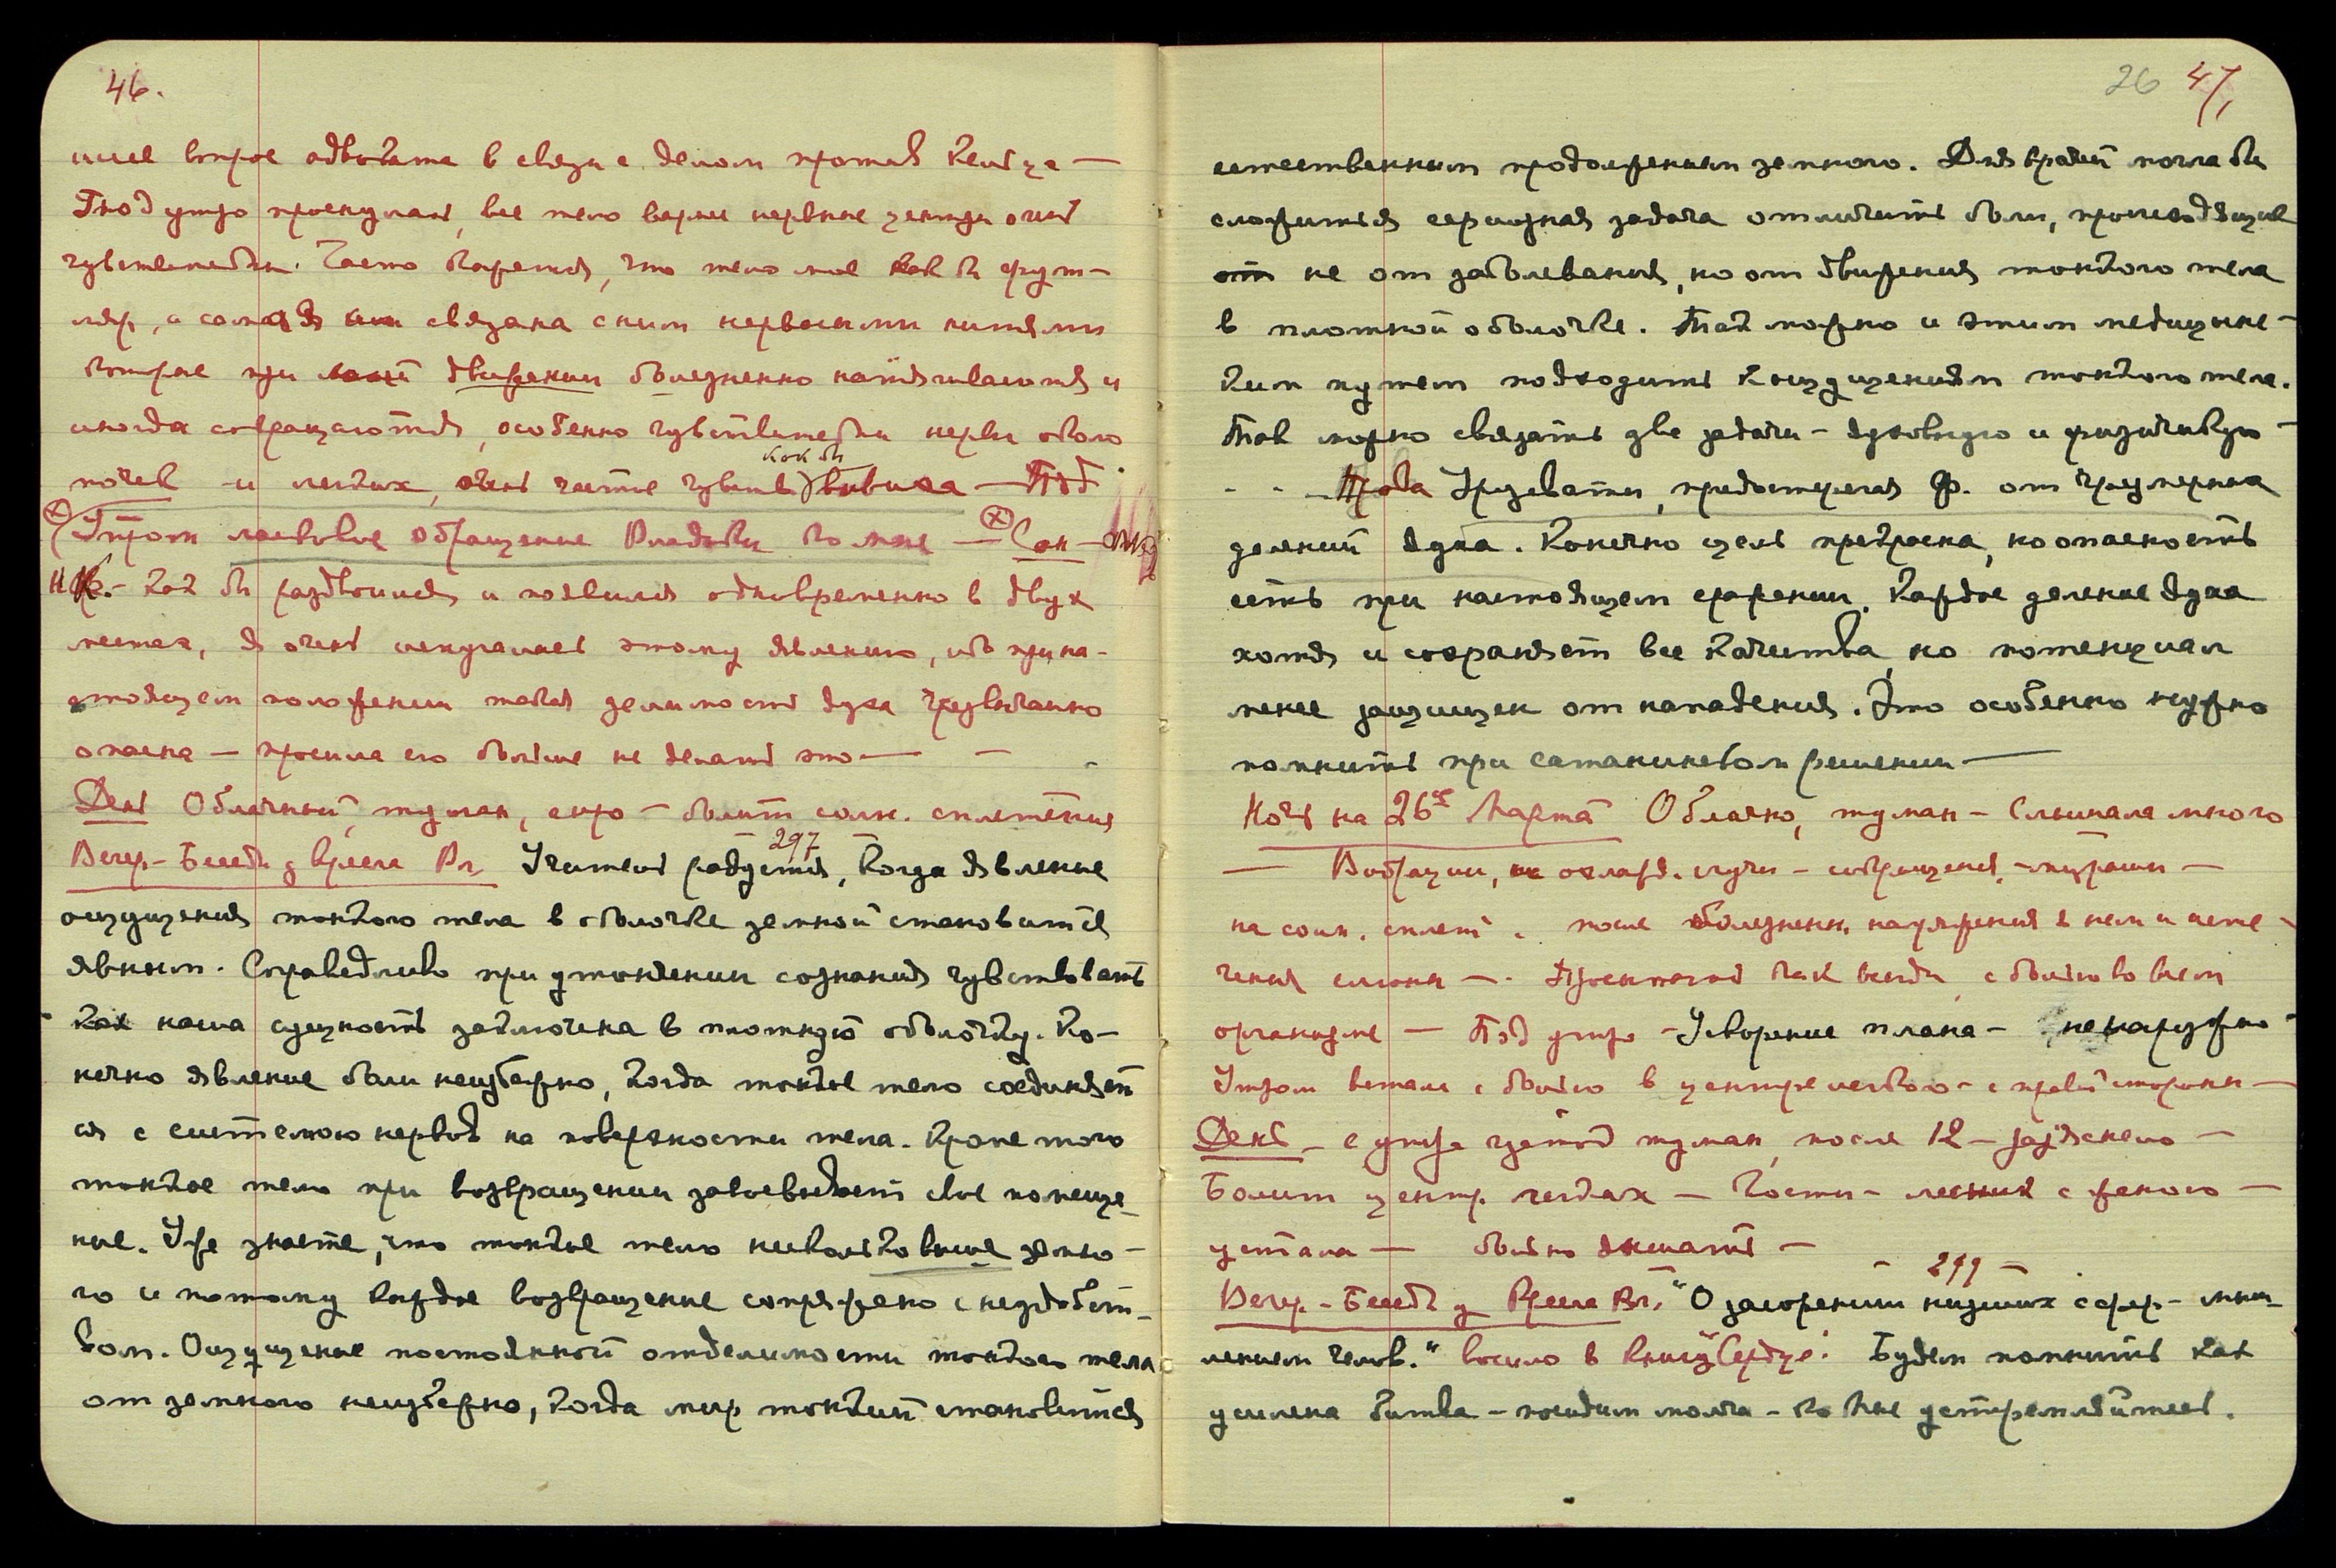 46.
иное второе адвоката в связи с делом против
Под утро проснулась, все тело вернее нервные центры очень
чувствительны. Часто кажется, что тело мое как бы фут-
ляр, а сама я связана с ним нервными нитями
которые при движении болезненно натягиваются и
иногда сокращаются, особенно чувствительны нервы около
почек и легких, очень частое чувство как бы вывиха — Под
Утром ласковое обращение Владыки ко мне — Сон —
как бы раздвоился и появился одновременно в двух
местах, я очень испугалась этому явлению, ибо при на-
стоящем положении такая делимость духа чрезвычайно
опасна — просила его больше не делать это —
День Облачный, туман, сыро — болит солн. сплетения
297
Вечер – Беседа у Кресла Вл. Учитель радуется, когда явление
ощущения тонкого тела в оболочке земной становится
явным. Справедливо при утончении сознания чувствовать
как наша сущность заключена в плотную оболочку. Ко-
нечно явление боли неизбежно, когда тонкое тело соединяет
ся с системою нервов на поверхности тела. Кроме того
тонкое тело при возвращении завоевывает свое помеще-
ние. Уже знаете, что тонкое тело несколько выше земно-
го и потому каждое возвращение сопряжено с неудобст-
вом. Ощущение постоянной отделимости тонкого тела
от земного неизбежно, когда мир тонкий становится
26 47,
естественным продолжением земного. Для врачей могла бы
сложиться серьезная задача отличить боли, происходящие
от не от заболевания, но от движения тонкого тела
в плотной оболочке. Так можно и этим медицинс-
ким путем подходить к ощущениям тонкого тела.
Так можно связать две задачи – духовную и физическую –
Права Урусвати, предостерегая Ф. от чрезмерных
делений духа. Конечно цель прекрасна, но опасность
есть при настоящем сражении. Каждое деление духа
хотя и сохраняет все качества, но потенциал
менее защищен от нападения. Это особенно нужно
помнить при сатанинском решении —
Ночь на 26ое Марта Облачно, туман – Слышала много
— Вибрации, охлажд. лучи – сокращения, –
на солн. сплет. после болезненн. напряжения в нем и исте-
чения слюны — Проснулась как всегда с болью во всем
организме — Под утро – Ускорение плана – ненаружно –
Утром встала с болью в центре легкого – с правой стороны —
День – с утра густой туман, после 12 – разъяснело —
Болит центр легких — Гости – лесник с женою —
устала — больно дышать —
– 299 –
Вечер – Беседа у Кресла Вл. "О засорении низших сфер –
челов." вошло в книгу "Сердце". Будем помнить как
усилена битва – посидим молча – ко Мне устремляйтесь.